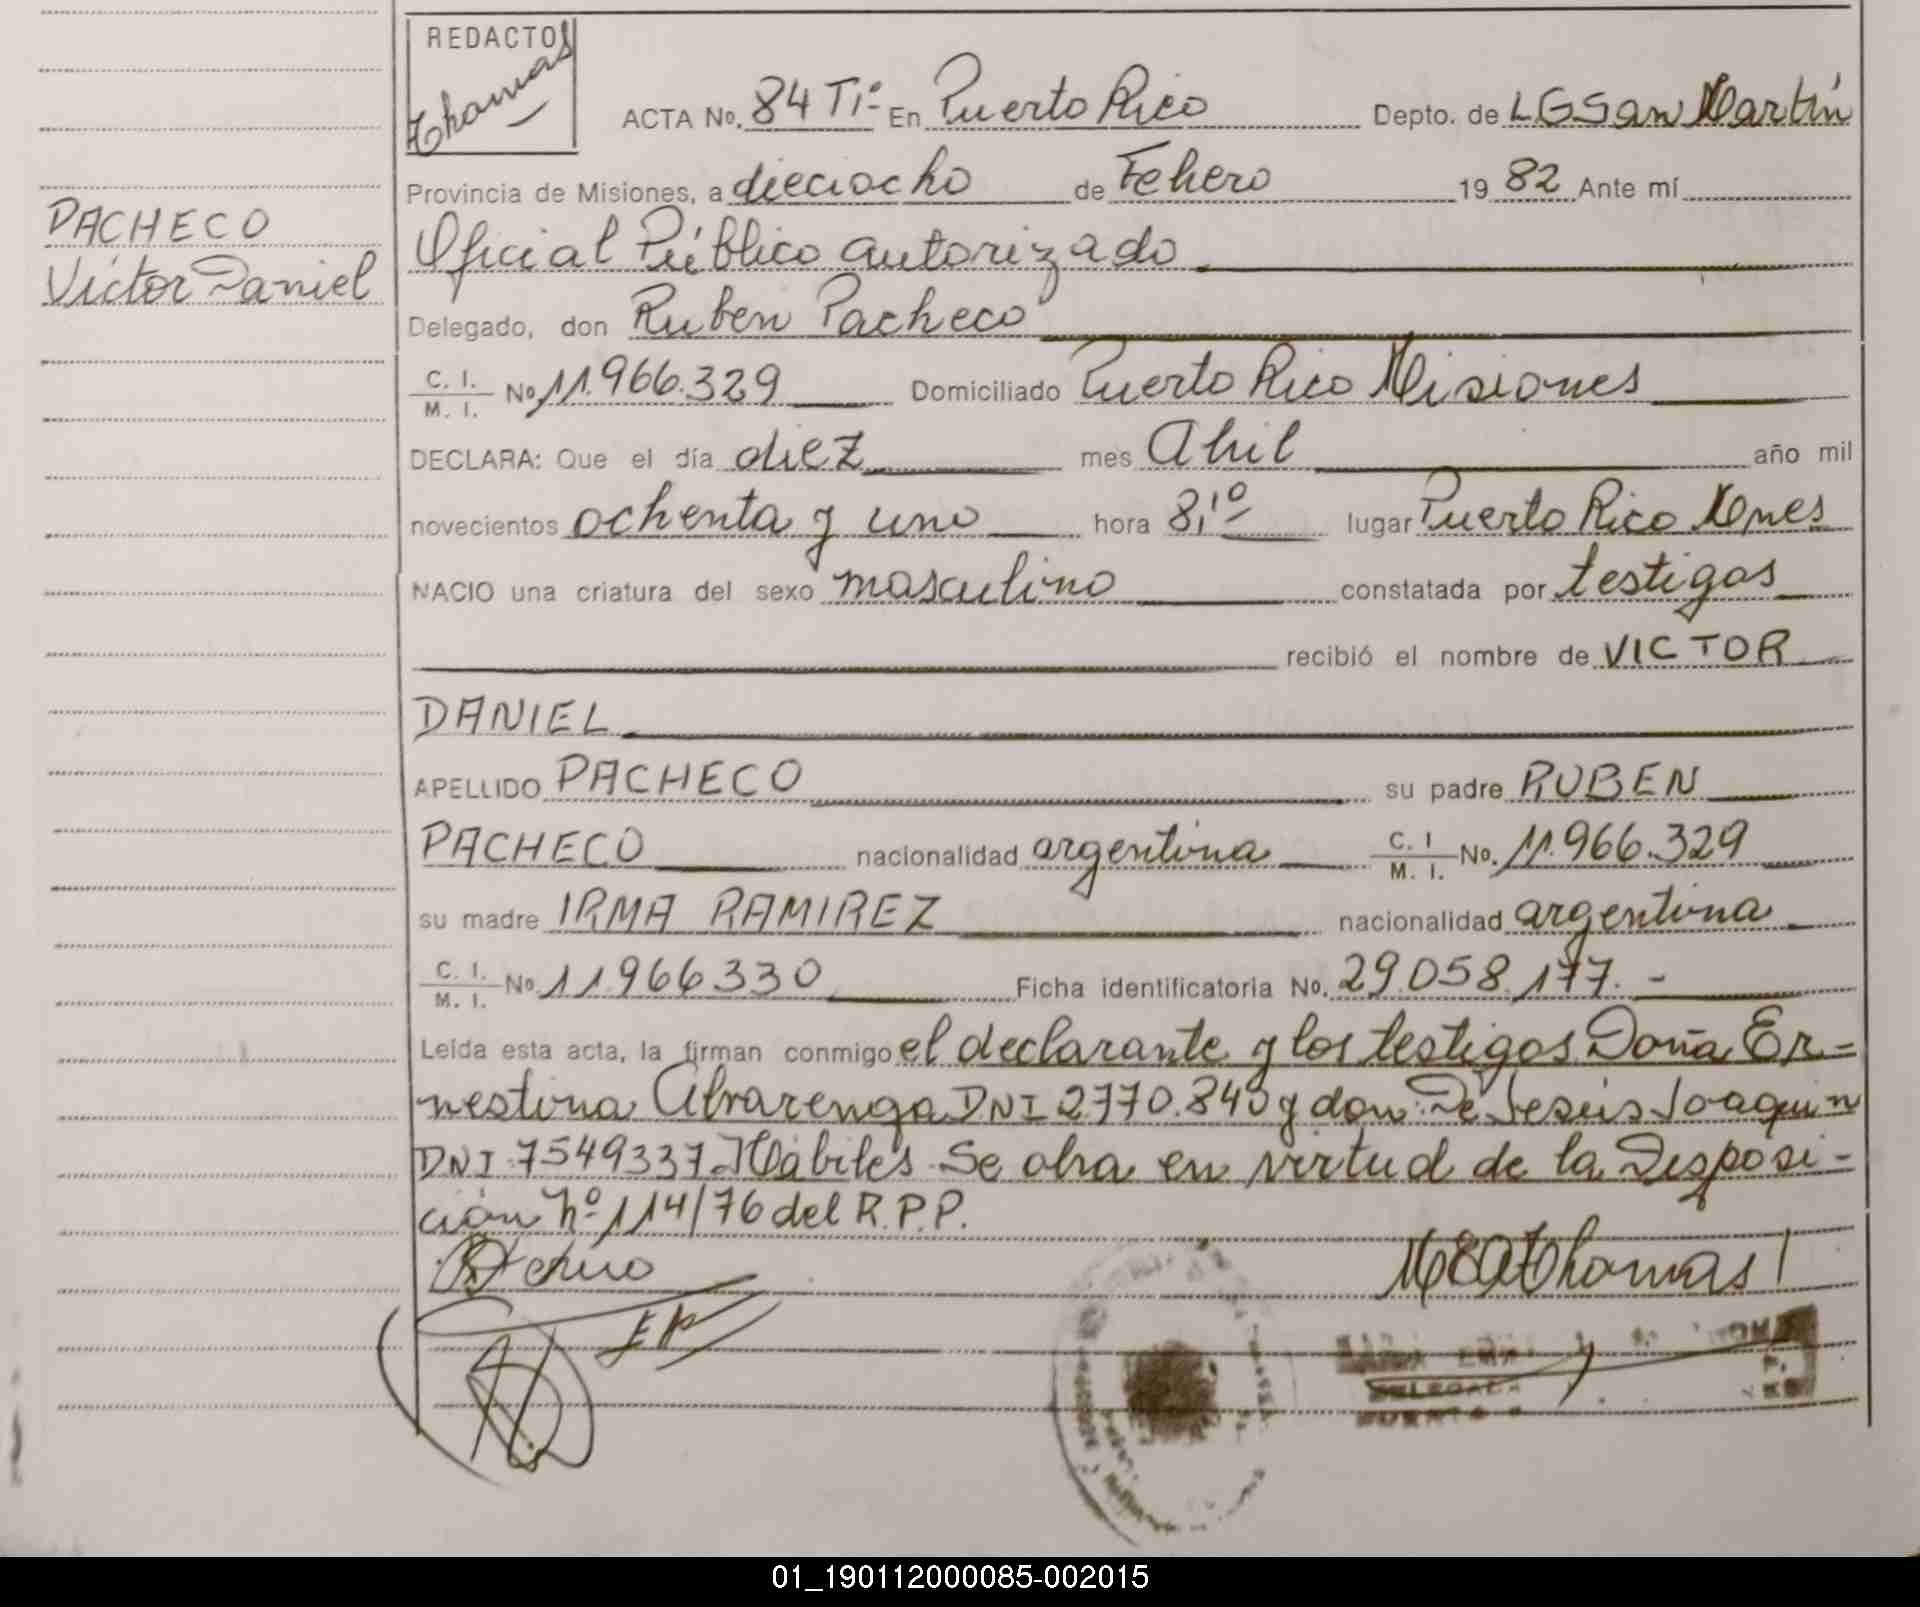 REDACTO
Thomas
ACTA No. 84 Tº En Puerto Rico Depto. de LGSan Martín
Provincia de Misiones, a dieciocho de Febrero 19 82 Ante mí
PACHECO
Victor Daniel
Oficial Público autorizado
Delegado, don Ruben Pacheco
C. I.
M. I. No 11.966.329 Domiciliado Puerto Rico Misiones
DECLARA: Que el día diez mes Abril año mil
novecientos ochenta y uno hora 8,1º lugar Puerto Rico Mnes
NACIO una criatura del sexo masculino constatada por testigos
recibió el nombre de VICTOR
DANIEL
APELLIDO PACHECO su padre RUBEN
PACHECO nacionalidad argentina C. I
M. I. No. 11.966.329
su madre IRMA RAMIREZ nacionalidad argentina
C. I.
M. I. No 11.966.330 Ficha identificatoria No. 29.058.177.-
Leída esta acta, la firman conmigo el declarante y los testigos Doña Er-
nestina Alvarenga DNI 2770.840 y don De Jesús Joaquin
DNI 7549337 Hábiles. Se obra en virtud de la Disposi-
ción nº 114/76 del R.P.P.
Thomas
DELEGADA
01_190112000085-002015